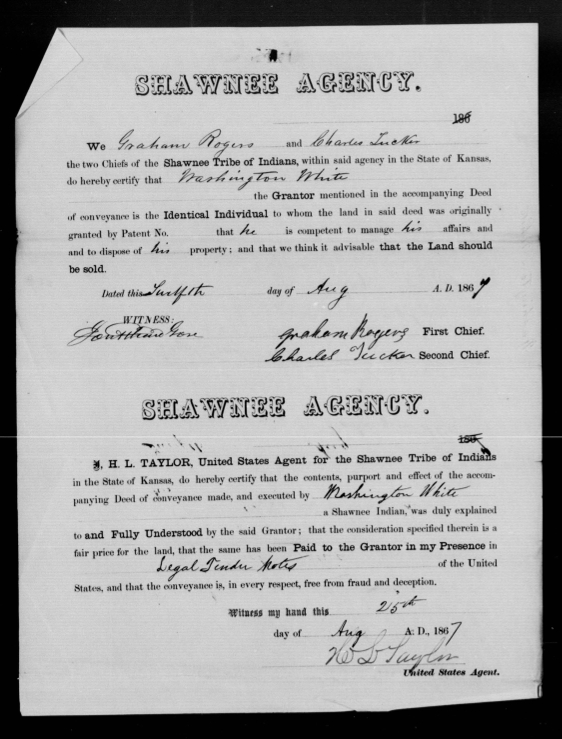 SHAWNEE AGENCY.
186
We Graham Rogers and Charles Tucker
the two Chiefs of the Shawnee Tribe of Indians, within said agency in the State of Kansas,
do hereby certify that Washington White
the Grantor mentioned in the accompanying Deed
of conveyance is the Identical Individual to whom the land in said deed was originally
granted by Patent No. that he is competent to manage his affairs and
and to dispose of his property; and that we think it advisable that the Land should
be sold.
Dated this Twelfth day of Aug A. D. 1867
WITNESS:
Graham Rogers First Chief.
Charles Tucker Second Chief.
SHAWNEE AGENCY.
186
I, H. L. TAYLOR, United States Agent for the Shawnee Tribe of Indians
in the State of Kansas, do hereby certify that the contents, purport and effect of the accom-
panying Deed of conveyance made, and executed by Washington White
a Shawnee Indian, was duly explained
to and Fully Understood by the said Grantor; that the consideration specified therein is a
fair price for the land, that the same has been Paid to the Grantor in my Presence in
Legal Tender Notes of the United
States, and that the conveyance is, in every respect, free from fraud and deception.
Witness my hand this 25th
day of Aug A. D., 1867
H L Taylor
United States Agent.